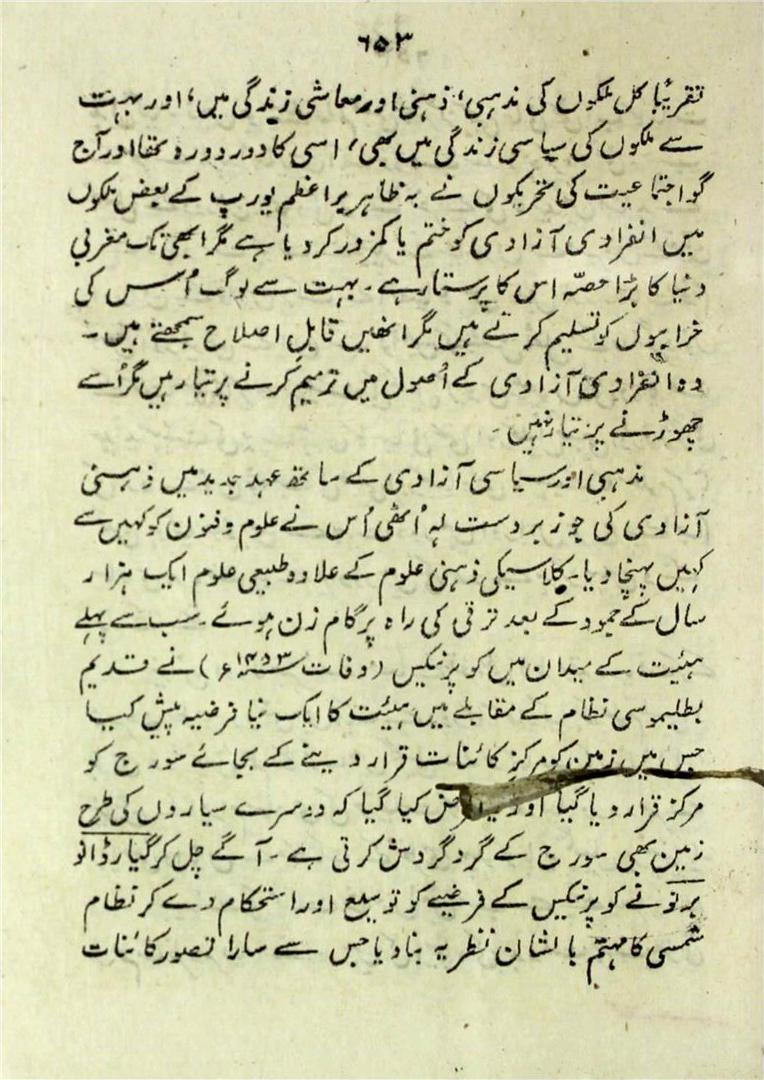 ٦٥٣
تقریباً کل ملکوں کی مذہبی، ذہنی اور معاشی زندگی میں، اور بہت
سے ملکوں کی سیاسی زندگی میں بھی، اسی کا دور دورہ تھا اور آج
گو اجتماعیت کی تحریکوں نے بہ ظاہر براعظم یورپ کے بعض ملکوں
میں انفرادی آزادی کو ختم یا کمزور کر دیا ہے مگر ابھی تک مغربی
دنیا کا بڑا حصّہ اس کا پرستار ہے۔ بہت سے لوگ اُس کی
خرابیوں کو تسلیم کرتے ہیں مگر انھیں قابلِ اصلاح سمجھتے ہیں۔
وہ انفرادی آزادی کے اُصول میں ترمیم کرنے پر تیار ہیں مگر اُسے
چھوڑنے پر تیار نہیں۔
مذہبی اور سیاسی آزادی کے ساتھ عہد جدید میں ذہنی
آزادی کی جو زبردست لہر اُٹھی اُس نے علوم و فنون کو کہیں سے
کہیں پہنچا دیا۔ کلاسیکی ذہنی علوم کے علاوہ طبیعی علوم ایک ہزار
سال کے جمود کے بعد ترقی کی راہ پر گام زن ہوئے۔ سب سے پہلے
ہیئت کے میدان میں کوپرنیکس (وفات سنہ ۱۴۵۳ء) نے قدیم
بطلیموسی نظام کے مقابلے میں ہیئت کا ایک نیا فرضیہ پیش کیا
جس میں زمین کو مرکزِ کائنات قرار دینے کے بجائے سورج کو
مرکز قرار دیا گیا اور یہ فرض کیا گیا کہ دوسرے سیاروں کی طرح
زمین بھی سورج کے گرد گردش کرتی ہے۔ آگے چل کر گیارڈانو
برنو نے کوپرنیکس کے فرضیے کو توسیع اور استحکام دے کر نظام
شمسی کا مہتم بالشان نظریہ بنا دیا جس سے سارا تصور کائنات